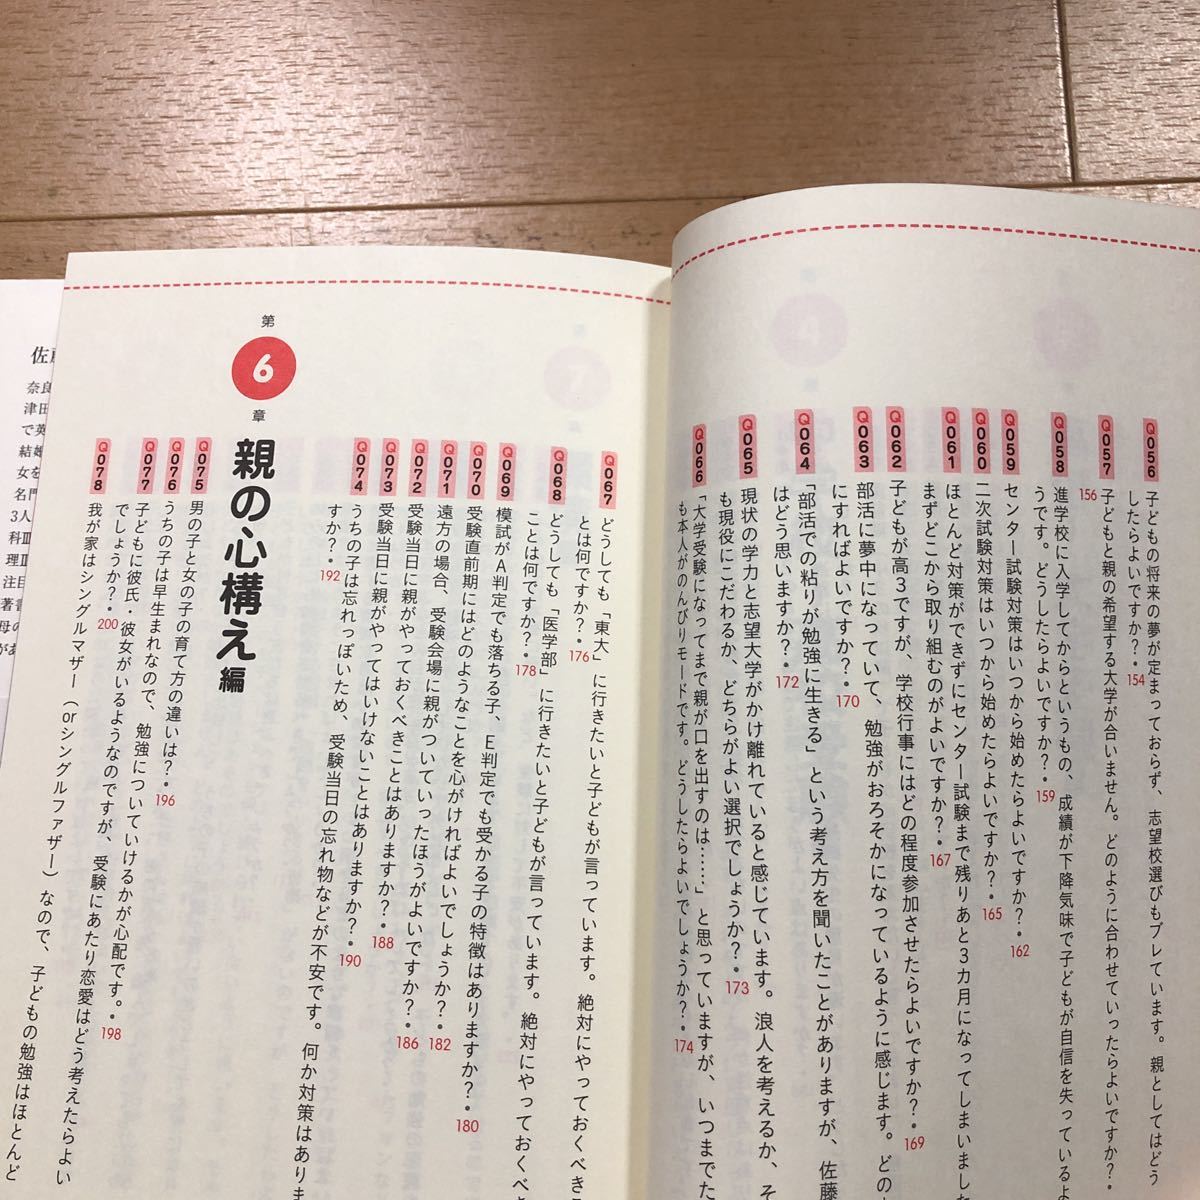 Q056 子どもの将来の夢が定まっておらず、志望校選びもブレています。親としてはどう
したらよいですか?・154
Q057 子どもと親の希望する大学が合いません。どのように合わせていったらよいですか?・
156
Q058 進学校に入学してからというもの、成績が下降気味で子どもが自信を失っているよ
うです。どうしたらよいですか?・159
Q059 センター試験対策はいつから始めたらよいですか?・162
Q060 二次試験対策はいつから始めたらよいですか?・165
Q061 ほとんど対策ができずにセンター試験まで残りあと3カ月になってしまいました
まずどこから取り組むのがよいですか?・167
Q062 子どもが高3ですが、学校行事にはどの程度参加させたらよいですか?・169
Q063 部活に夢中になっていて、勉強がおろそかになっているように感じます。どの
にすればよいですか?・170
Q064 「部活での粘りが勉強に生きる」という考え方を聞いたことがありますが、佐藤
はどう思いますか?・172
Q065 現状の学力と志望大学がかけ離れていると感じています。浪人を考えるか、そ
も現役にこだわるか、どちらがよい選択でしょうか?・173
Q066 「大学受験になってまで親が口を出すのは……」と思っていますが、いつまでた
も本人がのんびりモードです。どうしたらよいでしょうか?・174
Q067 どうしても「東大」に行きたいと子どもが言っています。絶対にやっておくべき
とは何ですか?・176
Q068 どうしても「医学部」に行きたいと子どもが言っています。絶対にやっておくべき
ことは何ですか?・178
Q069 模試がA判定でも落ちる子、E判定でも受かる子の特徴はありますか?・180
Q070 受験直前期にはどのようなことを心がければよいでしょうか?・182
Q071 遠方の場合、受験会場に親がついていったほうがよいですか?・186
Q072 受験当日に親がやっておくべきことはありますか?・188
Q073 受験当日に親がやってはいけないことはありますか?・190
Q074 うちの子は忘れっぽいため、受験当日の忘れ物などが不安です。何か対策はありま
すか?・192
第
6
章
親の心構え編
Q075 男の子と女の子の育て方の違いは?・196
Q076 うちの子は早生まれなので、勉強についていけるかが心配です。・198
Q077 子どもに彼氏・彼女がいるようなのですが、受験にあたり恋愛はどう考えたらよい
でしょうか?・200
Q078 我が家はシングルマザー(orシングルファザー)なので、子どもの勉強はほとんど
佐藤
奈良
津田
で英
結婚
女を
名門
3人
科Ⅲ
理Ⅲ
注目
著書
母の
があ